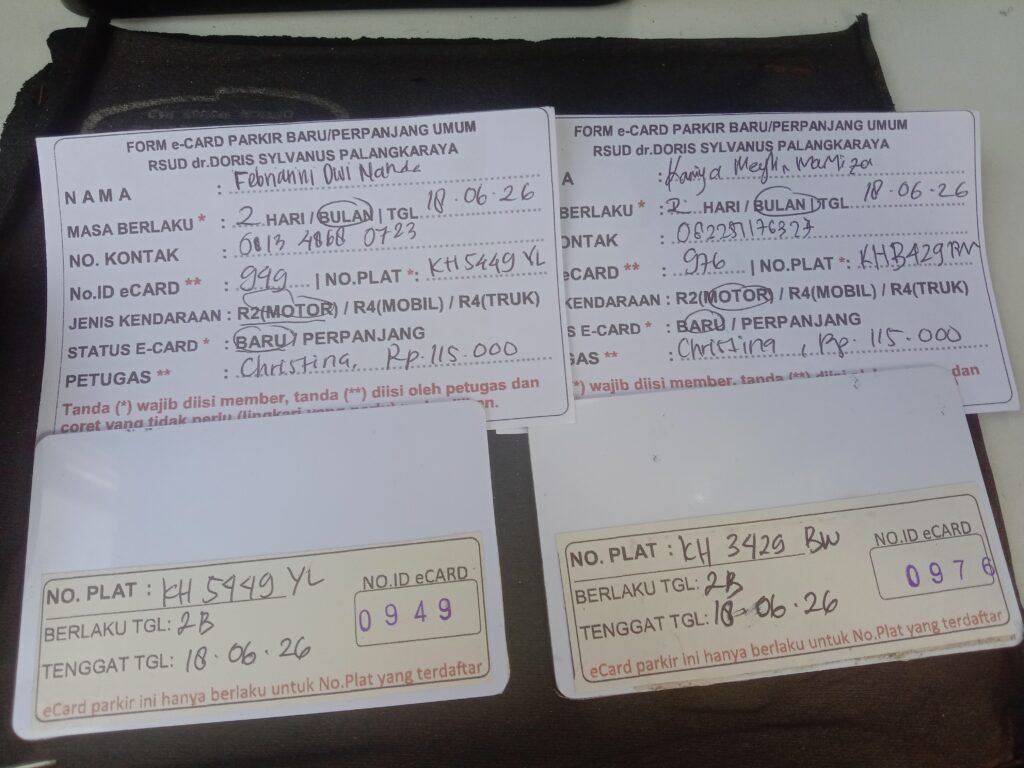 FORM e-CARD PARKIR BARU/PERPANJANG UMUM
RSUD dr.DORIS SYLVANUS PALANGKARAYA
NAMA : Febrianni Dwi Nanda
MASA BERLAKU * : 2 HARI / BULAN | TGL 18.06.26
NO. KONTAK : 0813 4868 0723
No.ID eCARD ** : 949 | NO.PLAT *: KH 5449 YL
JENIS KENDARAAN : R2(MOTOR) / R4(MOBIL) / R4(TRUK)
STATUS E-CARD * : BARU / PERPANJANG
PETUGAS ** : Christina, Rp. 115.000
Tanda (*) wajib diisi member, tanda (**) diisi oleh petugas dan
coret yang tidak perlu (lingkari yang
FORM e-CARD PARKIR BARU/PERPANJANG UMUM
RSUD dr.DORIS SYLVANUS PALANGKARAYA
A : 
BERLAKU * : 2 HARI / BULAN | TGL 18.06.26
ONTAK : 082251176327
eCARD ** : 976 | NO.PLAT *: KH 3429 BW
KENDARAAN : R2(MOTOR) / R4(MOBIL) / R4(TRUK)
S E-CARD * : BARU / PERPANJANG
GAS ** : Christina, Rp. 115.000
*) wajib diisi member, tanda (**) dan
NO. PLAT : KH 5449 YL
NO.ID eCARD
0949
BERLAKU TGL: 2B
TENGGAT TGL: 18.06.26
eCard parkir ini hanya berlaku untuk No.Plat yang terdaftar
NO. PLAT : KH 3429 BW
NO.ID eCARD
0976
BERLAKU TGL: 2B
TENGGAT TGL: 18-06.26
eCard parkir ini hanya berlaku untuk No.Plat yang terdaftar